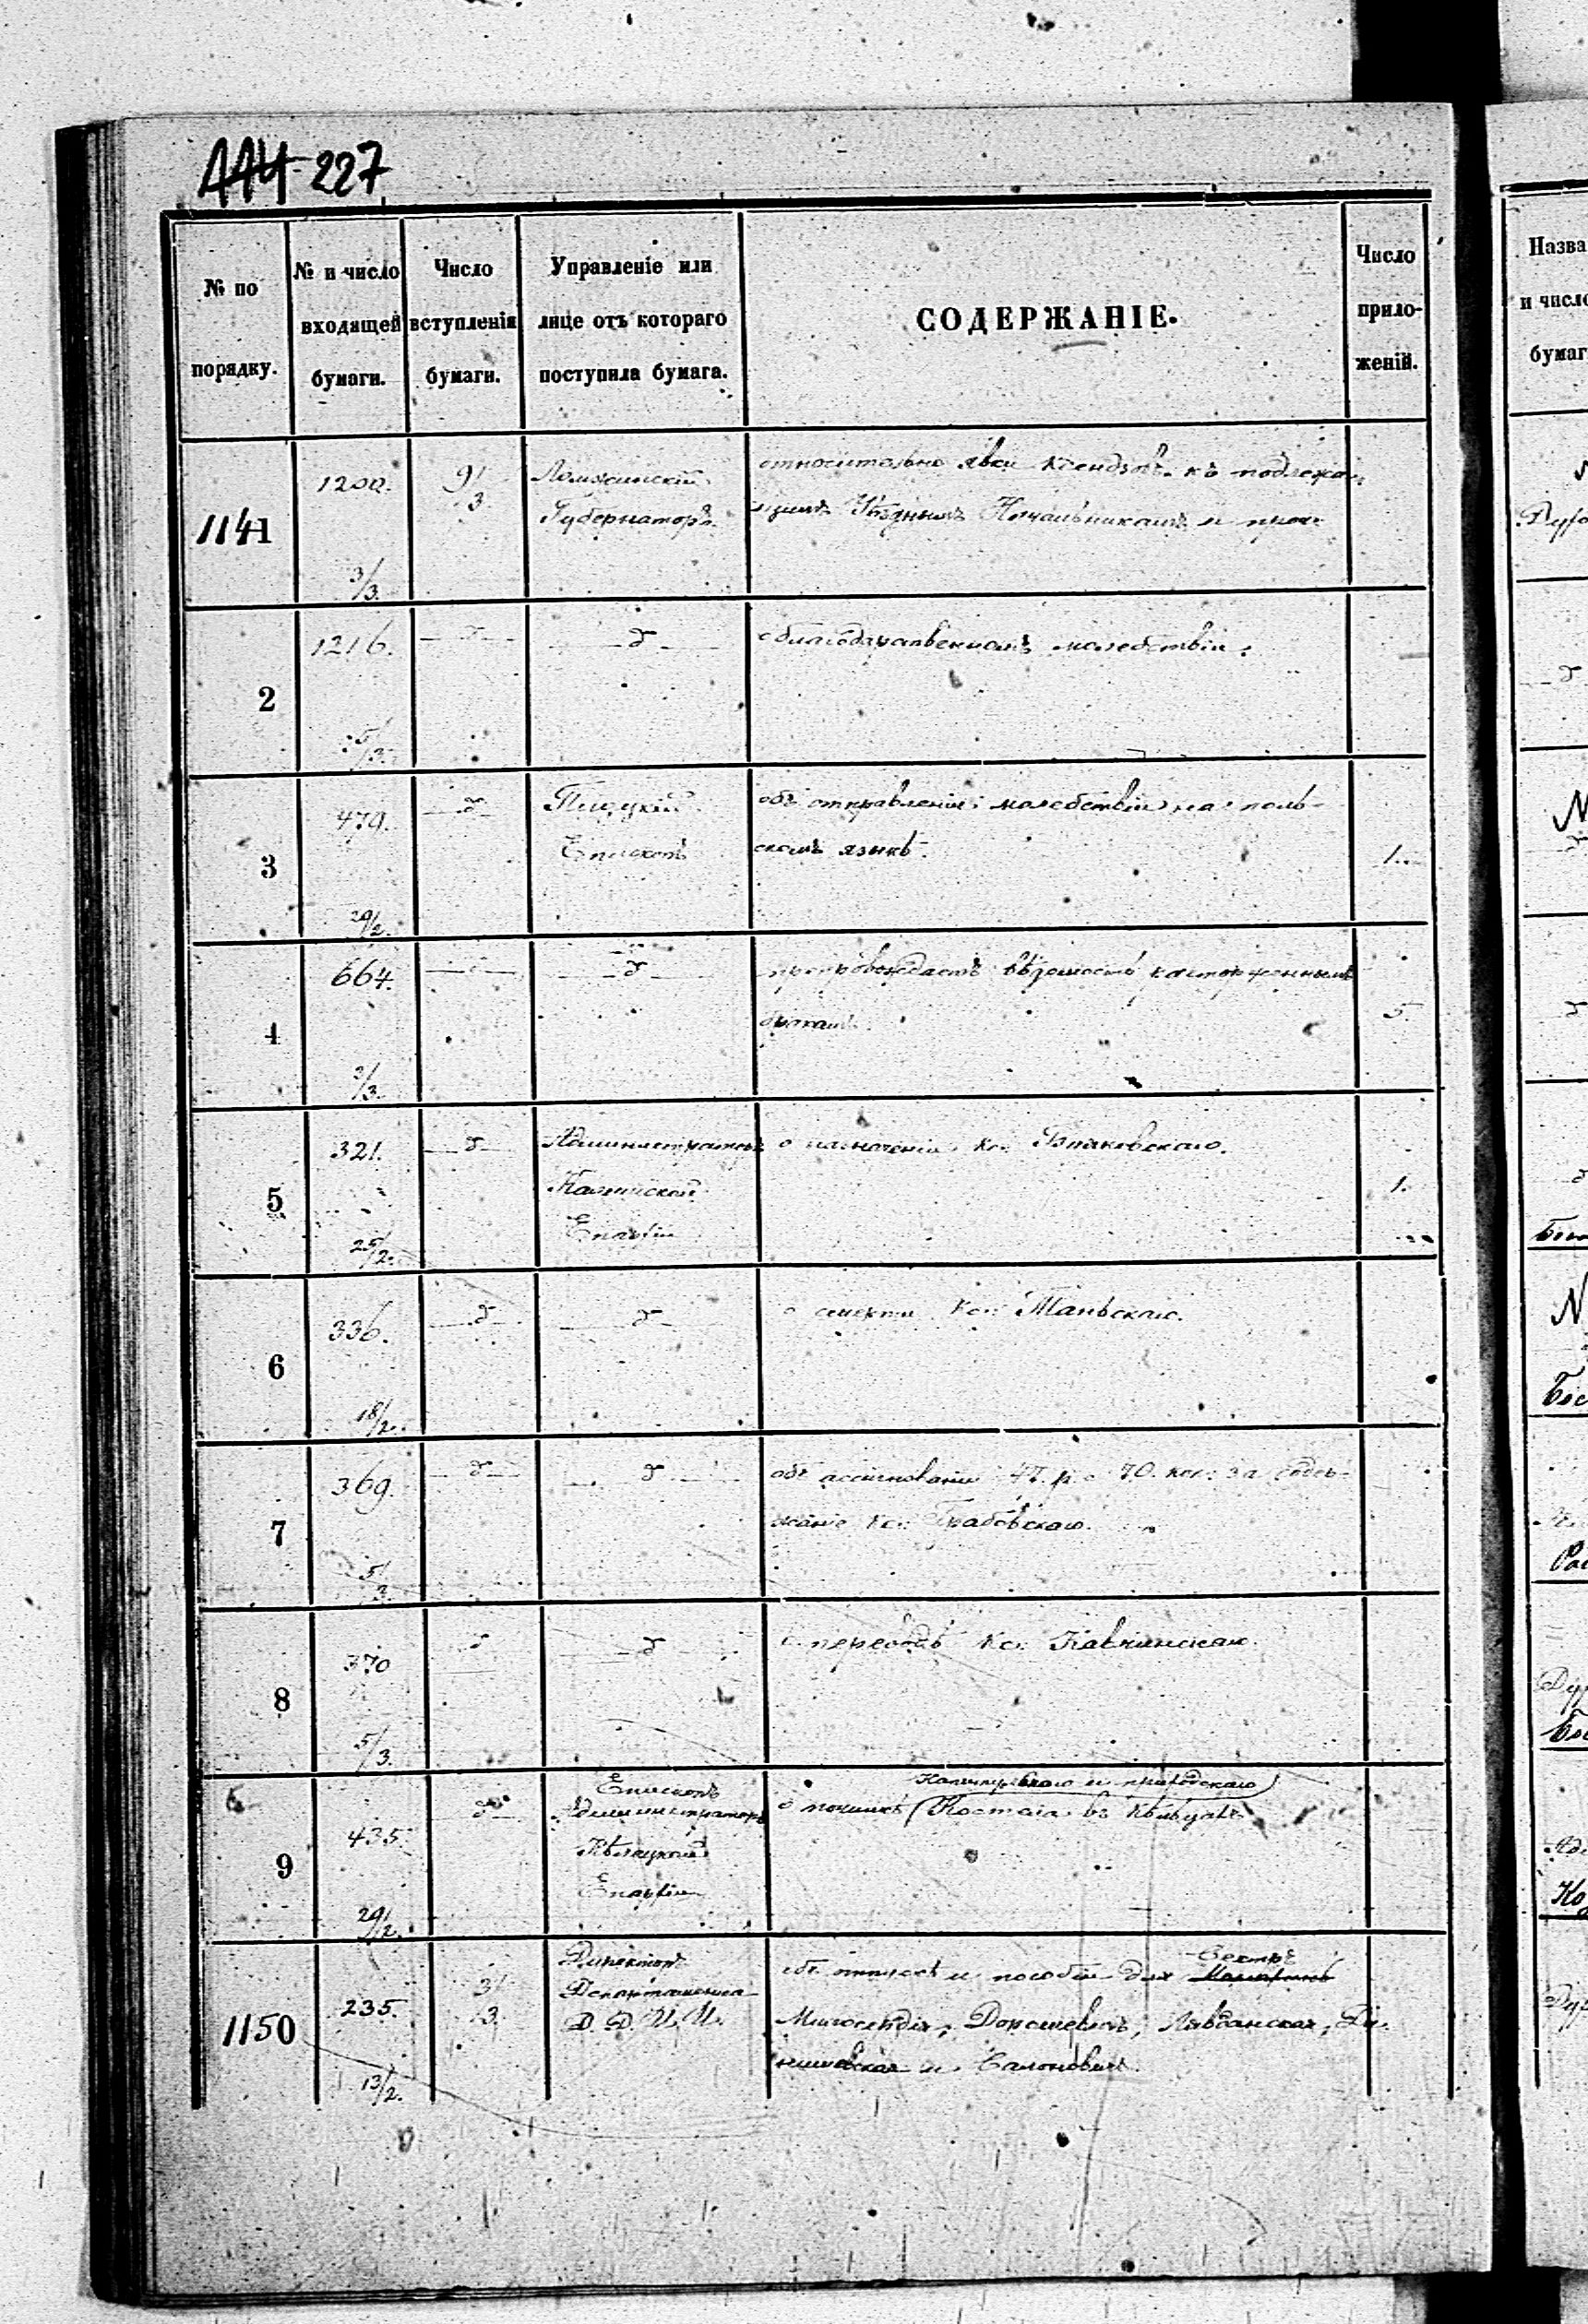 114 227
№ по порядку.
№ и число входящей бумаги.
Число вступленія бумаги.
Управленіе или лице отъ котораго поступила бумага.
СОДЕРЖАНІЕ.
Число приложеній.
1141
1200.
3/3.
9/3
Ломжинскій
Губернаторъ.
относительно явки ксендзовъ къ подлежа-
щимъ Уѣзднымъ Начальникамъ и проч.
2
1216.
5/3.
— д —
— д —
о благодарственномъ молебствіи.
3
479.
29/2.
— д —
Плоцкій
Епископъ
объ отправленіи молебствій на поль-
скомъ языкѣ.
1.
4
664.
3/3.
— д —
препровождаетъ вѣдомость расторженнымъ
бракамъ.
5.
5
321.
25/2.
— д —
Администраторъ
Калишской
Епархіи
о назначеніи кс.
1.
6
336.
18/2.
— д —
— д —
о смерти Кс. Таньскаго.
7
369.
5/3
— д —
— д —
объ ассигнованіи 47 р. 70 коп. за содер-
жаніе кс. Грабовскаго.
8
370
5/3.
д
— д —
о переводѣ Кс.
9
435.
29/2.
д —
Епископъ
Администраторъ
Кѣлецкой
Епархіи
приходскаго
о починкѣ Костела въ
1150
235.
13/2.
3/3.
Директоръ
Департамента
Д. Д. И. И.
Сестръ
объ отпускѣ и пособіи для
Милосердія,
и
Назва
и число
бумаг